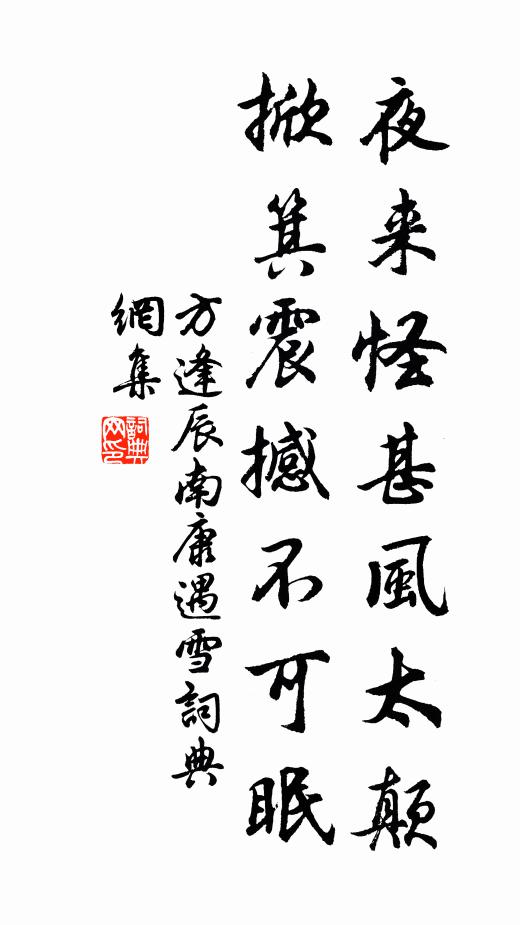 夜来怪甚風太顛
掀箕震撼不可眠
方逢辰南康遇雪詞典
網集
詞典网印